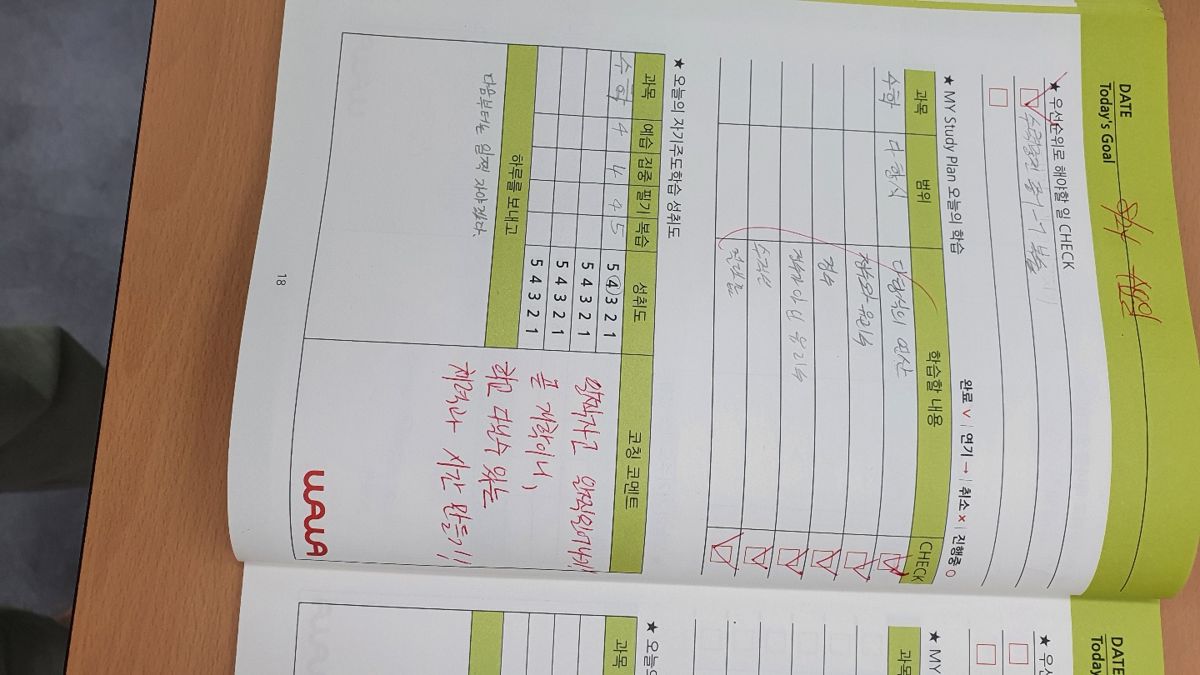 DATE
Today's Goal
★ 우선순위로 해야할 일 CHECK
★ MY Study Plan 오늘의 학습
완료 ∨ | 연기 → | 취소 × | 진행중 ○
과목 범위 학습할 내용 CHECK
수학 다항식 다항식의 연산
정수와 유리수
정수
정수가 아닌 유리수
소인수
절댓값
★ 오늘의 자기주도학습 성취도
과목 예습 집중 필기 복습 성취도 코칭 코멘트
수학 4 4 4 5 5 4 3 2 1
5 4 3 2 1
5 4 3 2 1
5 4 3 2 1
하루를 보내고
다음부터는 일찍 자야겠다.
일찍자고 일찍일어나기!
곧 개학이니,
학교 다닐수 있는
체력과 시간 만들기!
WAWA
18
DATE
Today
★ 우선
★ MY
과목
★ 오늘의
과목